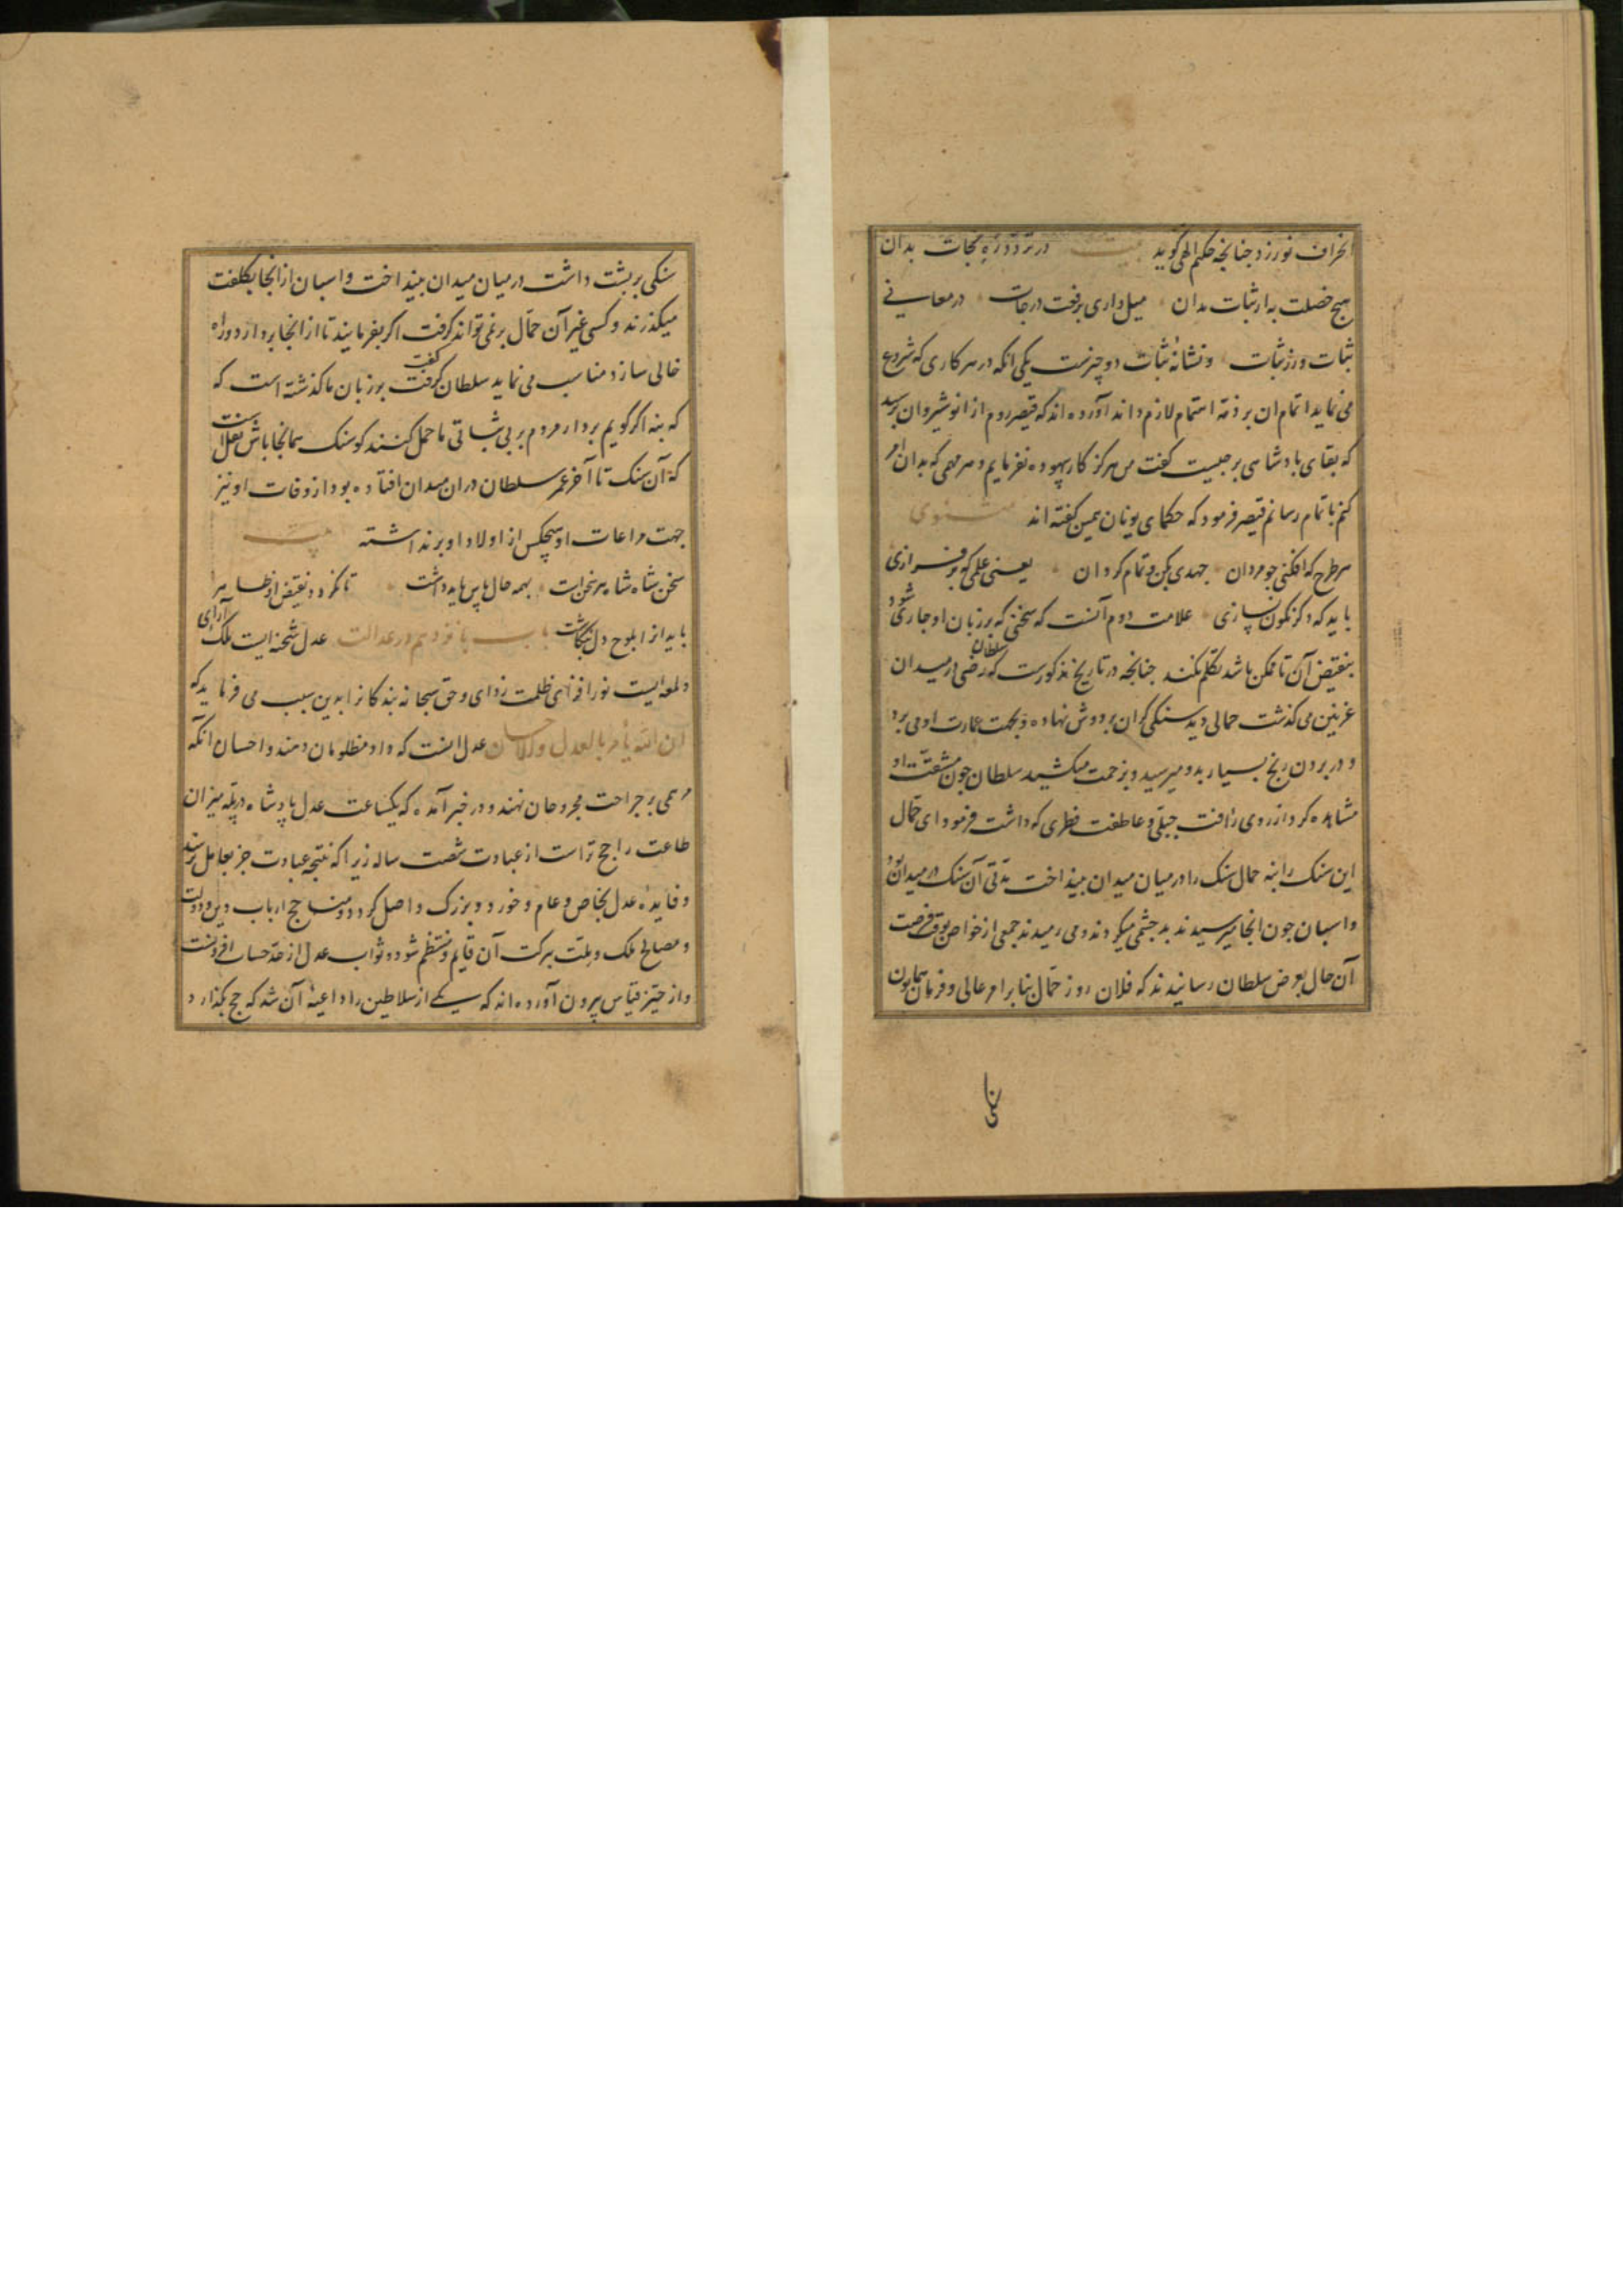 انحراف نورزد جنانجه حکیم الهی کوید بیت در تردد ره نجات بدان
هیچ خصلت به از ثبات مدان میل داری برفعت درجات در معانی
ثبات ورز ثبات ونشانهٔ ثبات دو چیزست یکی انکه در هر کاری که شروع
می نماید اتمام ان بر ذمه اهتمام لازم داند آورده اند که قیصر روم از انوشیروان برسید
که بقای بادشاهی بر جیست کفت من هرکز کار بیهوده نفرمایم و هر مهمی که بدان امر
کنم باتمام رسانم قیصر فرمود که حکمای یونان همین کفته اند مثنوی
هر طرح که افکنی جو مردان جهدی بکن و تمام کردان یعنی علمی که برفرازی
باید که دکر نکون نسازی علامت دوم آنست که سخنی که بر زبان او جاری شود
بنقیض آن تا ممکن باشد تکلم نکند جنانجه در تاریخ مذکورست که سلطان رضی در میدان
غزنین می کذشت حمالی دید سنکی کران بر دوش نهاده و بجهت عمارت او می برد
و در بردن رنج بسیار بدو میرسید و بزحمت میکشید سلطان جون مشقت او
مشاهده کرد از روی رأفت جبلی و عاطفت فطری که داشت فرمود ای حمال
این سنک را بنه حمال سنک را در میان میدان بینداخت مدتی آن سنک در میدان بود
و اسبان جون انجا میرسیدند بد جشمی میکردند و می رمیدند جمعی از خواص بوقت فرصت
آن حال بعرض سلطان رسانیدند که فلان روز حمال بنا بر امر عالی و فرمان همایون
سنکی بر بشت داشت در میان میدان بینداخت و اسبان از انجا بکلفت
میکذرند و کسی غیر آن حمال بر نمی تواند کرفت اکر بفرمایند تا از انجا بردارد و راه
خالی سازد مناسب می نماید سلطان کفت کرفت بر زبان ما کذشته است که
که بنه اکر کویم بردار مردم بر بی ثباتی ما حمل کنند کو سنک همانجا باش
که آن سنک تا آخر عمر سلطان دران میدان افتاده بود و از وفات او نیز
جهت مراعات او هیچکس از اولاد او برنداشته بیت
سخن شاه شاه هر سخن است بهمه حال باس باید داشت تا نکردد نقیض او ظاهر
باید انرا بلوح دل بنکاشت باب بانزدهم در عدالت عدل شحنه ایست ملک آرای
و لمعه ایست نور افزای ظلمت زدای و حق سبحانه بندکانرا بدین سبب می فرماید که
ان الله یأمر بالعدل والاحسان عدل انست که داد مظلومان دهند و احسان انکه
مرهمی بر جراحت مجروحان نهند و در خبر آمده که یکساعت عدل بادشاه در بله میزان
طاعت راجح تر است از عبادت شصت ساله زیرا که نتیجه عبادت جز بعامل نرسد
و فایده عدل بخاص و عام و خورد و بزرک واصل کردد و مناهج ارباب دین و دولت
و مصالح ملک و ملت ببرکت آن قایم و منتظم شود و ثواب عدل از حد حساب افزونست
و از حیز قیاس بیرون آورده اند که یکی از سلاطین را داعیهٔ آن شد که حج بکذارد